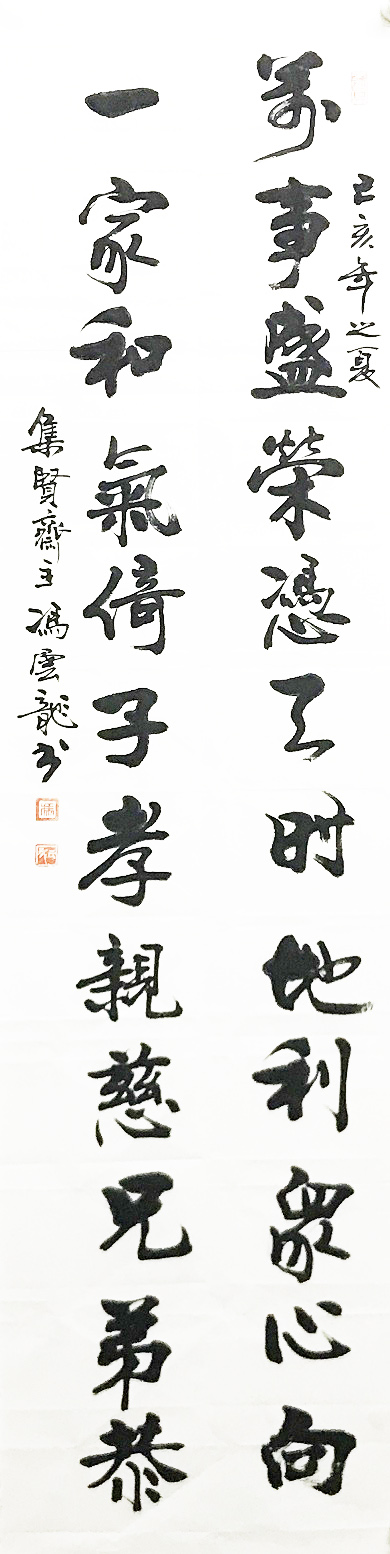 己亥年之夏
萬事盛榮憑天时地利眾心向
一家和氣倚子孝親慈兄弟恭
集賢齋主馮雲龍书